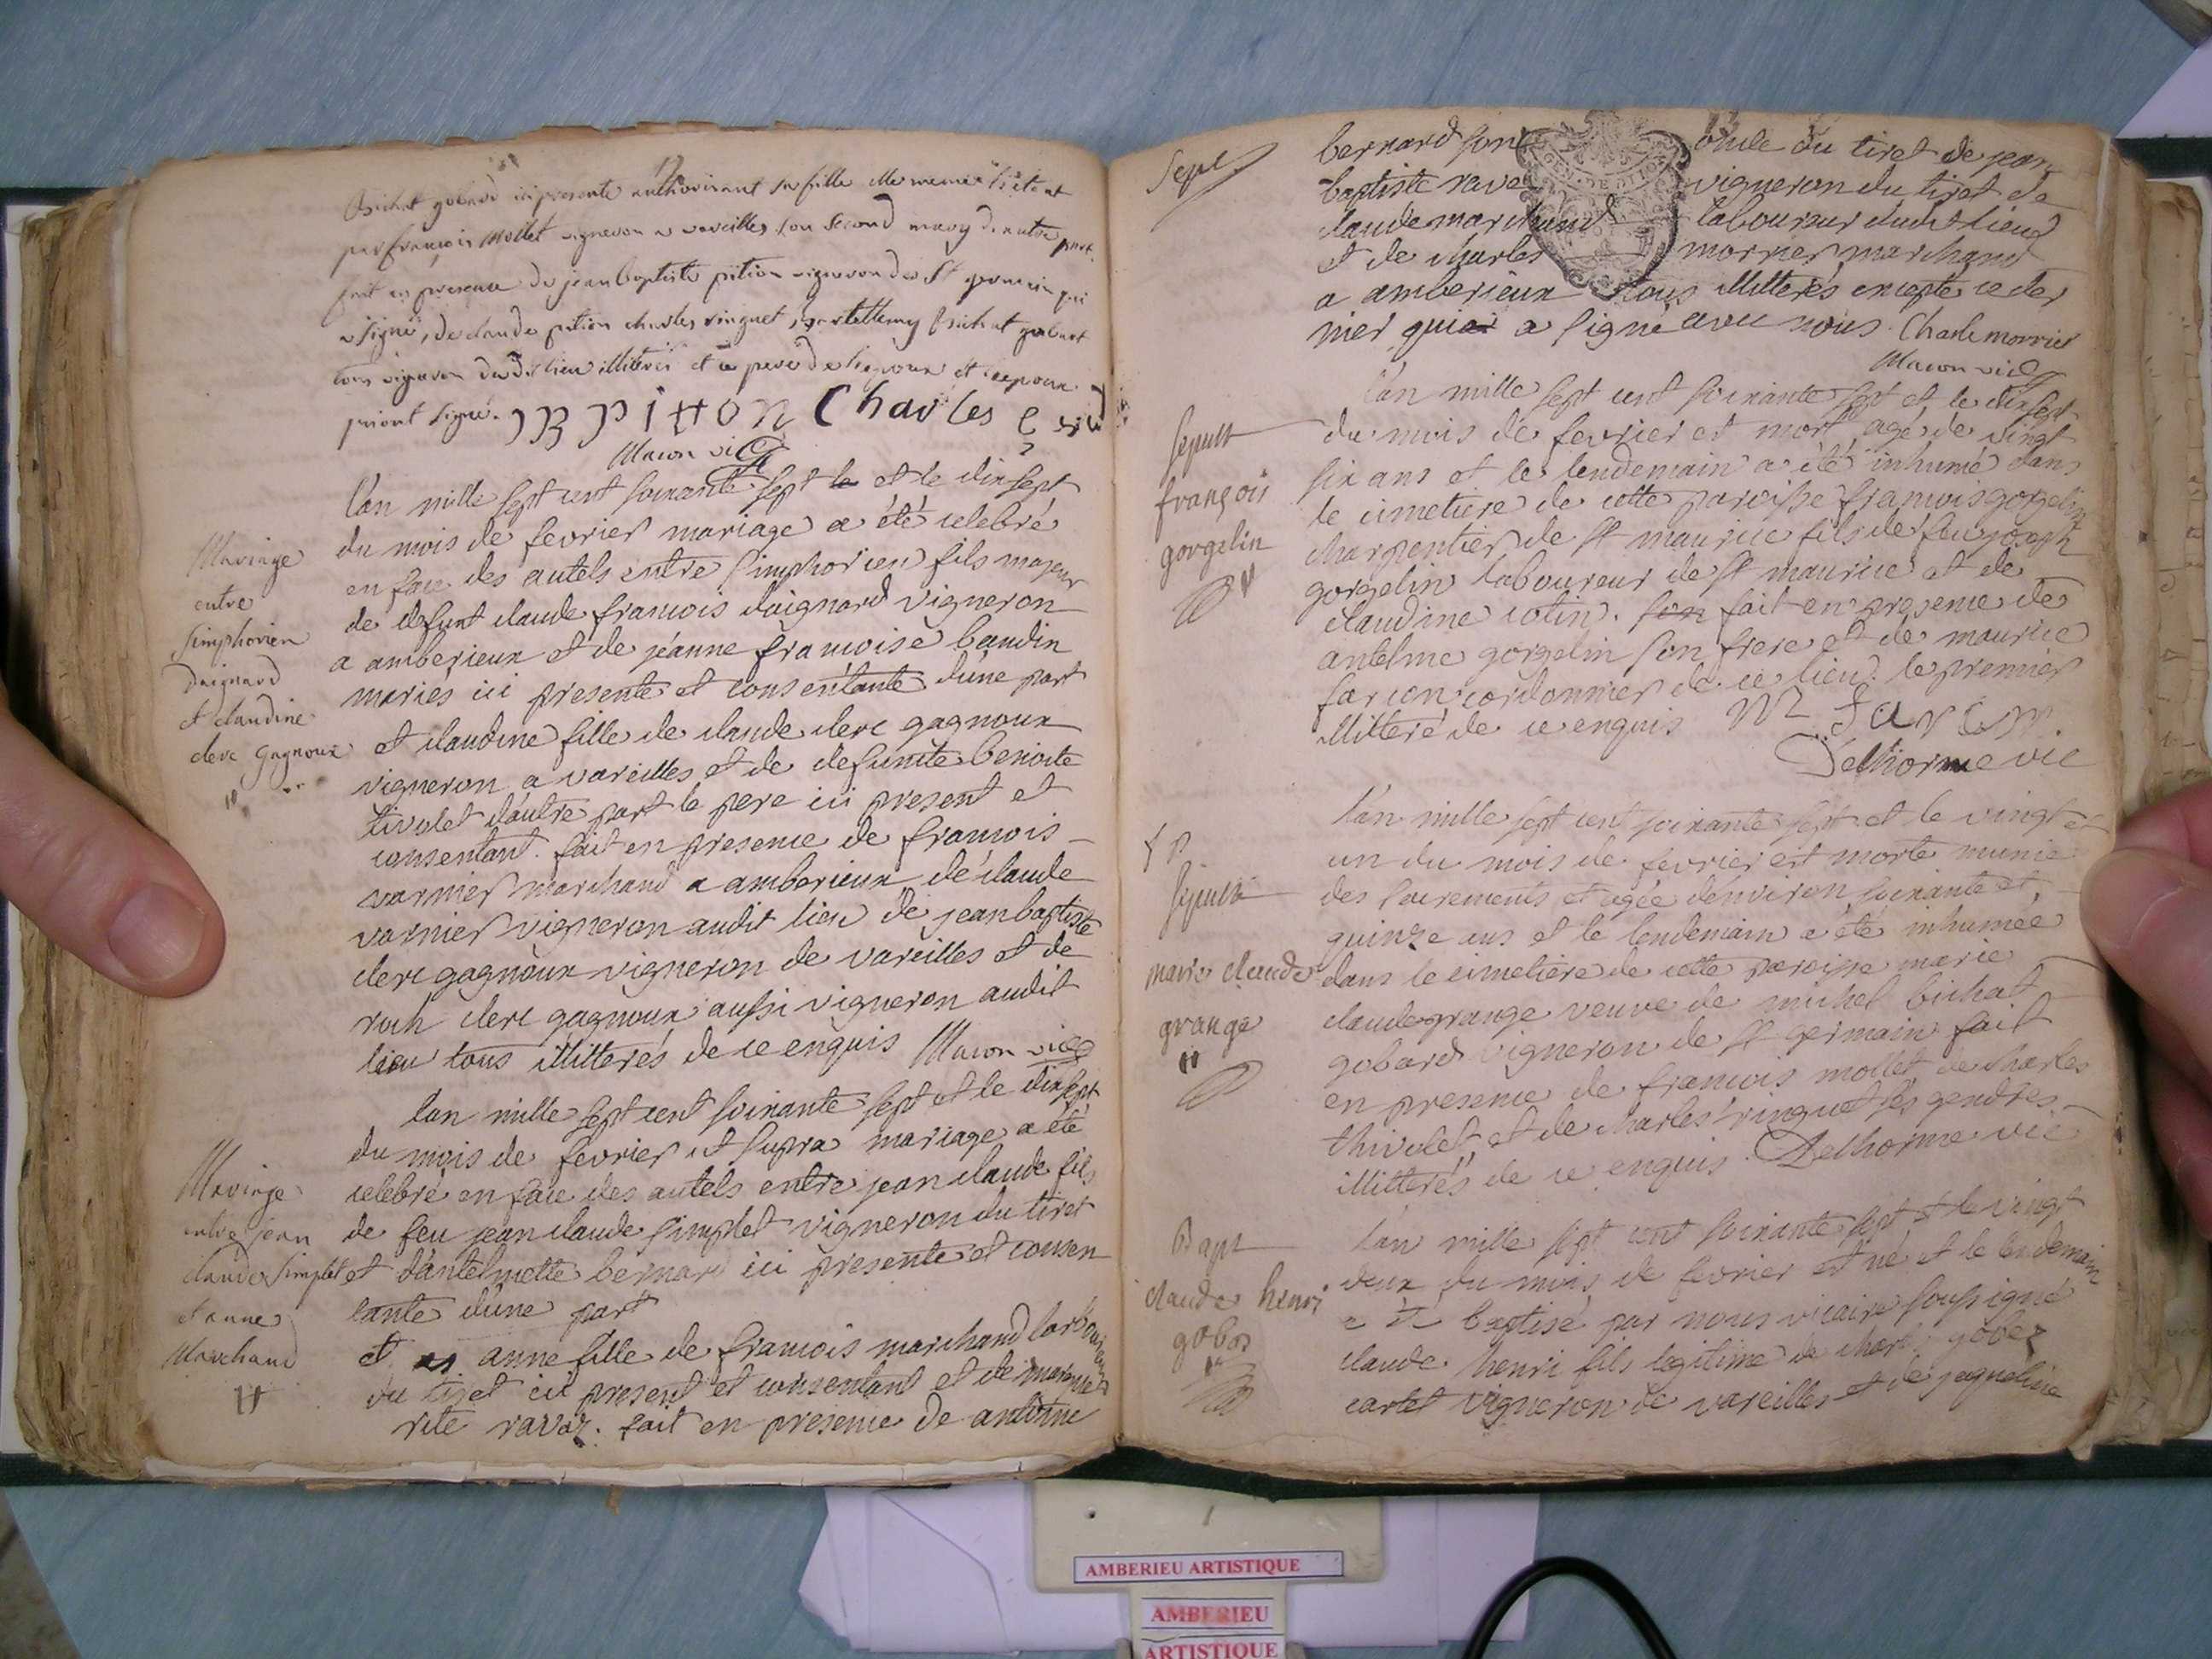 Bichat gobard ici presente authorisant sa fille elle meme
par françois Mollet vigneron a vareilles son second mary d'autre part
fait en presence de jean baptiste pition vigneron de St germain qui
a signé, de claude pition charles ringuet, bartellemy Bichat gobard
tous vigneron dudit lieu illiterés et le pere de l'epoux et l'epoux
priont signé. JB PittON Charles
Macon vic
Mariage
entre
simphorien
Daignard
et claudine
clerc Gagnoux
l'an mille sept cent soixante sept et le dixsept
du mois de fevrier mariage a été celebré
en face des autels entre simphorien fils majeur
de defunt claude francois daignard vigneron
a amberieux et de jéanne francoise baudin
mariés ici presente et consentante d'une part
et claudine fille de claude clerc gagnoux
vigneron a vareilles et de defunte benoite
tivolet d'autre part le pere ici present et
consentant. fait en presence de francois
varnier marchand a amberieux de claude
varnier vigneron audit lieu de jean baptiste
clerc gagnoux vigneron de vareilles et de
roch clerc gagnoux aussi vigneron audit
lieu tous illitterés de ce enquis Macon vic
Mariage
entre jean
claude simplet
et anne
Marchand
l'an mille sept cent soixante sept et le dixsept
du mois de fevrier ut supra mariage a été
celebré en face des autels entre jean claude fils
de feu jean claude simplet vigneron du tiret
et d'antelmette bernard ici presente et consen
tante d'une part
et anne fille de francois marchand laboureur
du tiret ici present et consentant et de margue
rite ravaz. fait en presence de antoine
bernard son oncle du tiret de jean
baptiste rava vigneron du tiret de
claude marchand laboureur dudit lieu
et de charles morrier marchand
a amberieux tous illitterés excepté ce der
nier qui a signé avec nous. Charle morrier
Macon vic
Sepult
françois
gorgelin
l'an mille sept cent soixante sept et le dixsept
du mois de fevrier est mort agé de vingt
six ans et le lendemain a été inhumé dans
le cimetiere de cette paroisse francois gorgelin
charpentier de st maurice fils de feu joseph
gorgelin laboureur de st maurice et de
claudine cotin. fait en presence de
antelme gorgelin son frere et de maurice
farcon cordonnier de ce lieu. le premier
illitteré de ce enquis M farcon
Delhorme vic
Sepult
marie claude
grange
l'an mille sept cent soixante sept et le vingt et
un du mois de fevrier est morte munie
des sacrements et agée d'environ soixante et
quinze ans et le lendemain a été inhumée
dans le cimetiere de cette paroisse marie
claude grange veuve de michel bichat
gobard vigneron de st germain fait
en presence de francois mollet de charles
thivolet, et de charles ringuet ses gendres
illitterés de ce enquis. Delhorme vic
Bapt
claude henri
gobet
l'an mille sept cent soixante sept et le vingt
deux du mois de fevrier est né et le lendemain
a été baptisé par nous vicaire soussigné
claude henri fils legitime de charle gobet
cartet vigneron de vareilles et de jaqueline
AMBERIEU ARTISTIQUE
AMBERIEU
ARTISTIQUE